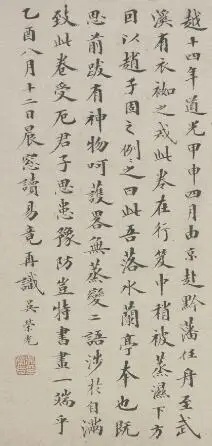 越十四年道光甲申四月由京赴黔藩任舟至武
溪有衣袽之戒此卷在行笈中稍被蒸濕下方
因以趙子固之例例之曰此吾落水蘭亭本也既
思前跋有神物呵護畧無蒸變二語涉於自滿
致此卷受厄君子思患豫防豈特書畫一端乎
乙酉八月十二日晨窓讀易竟再識吳榮光